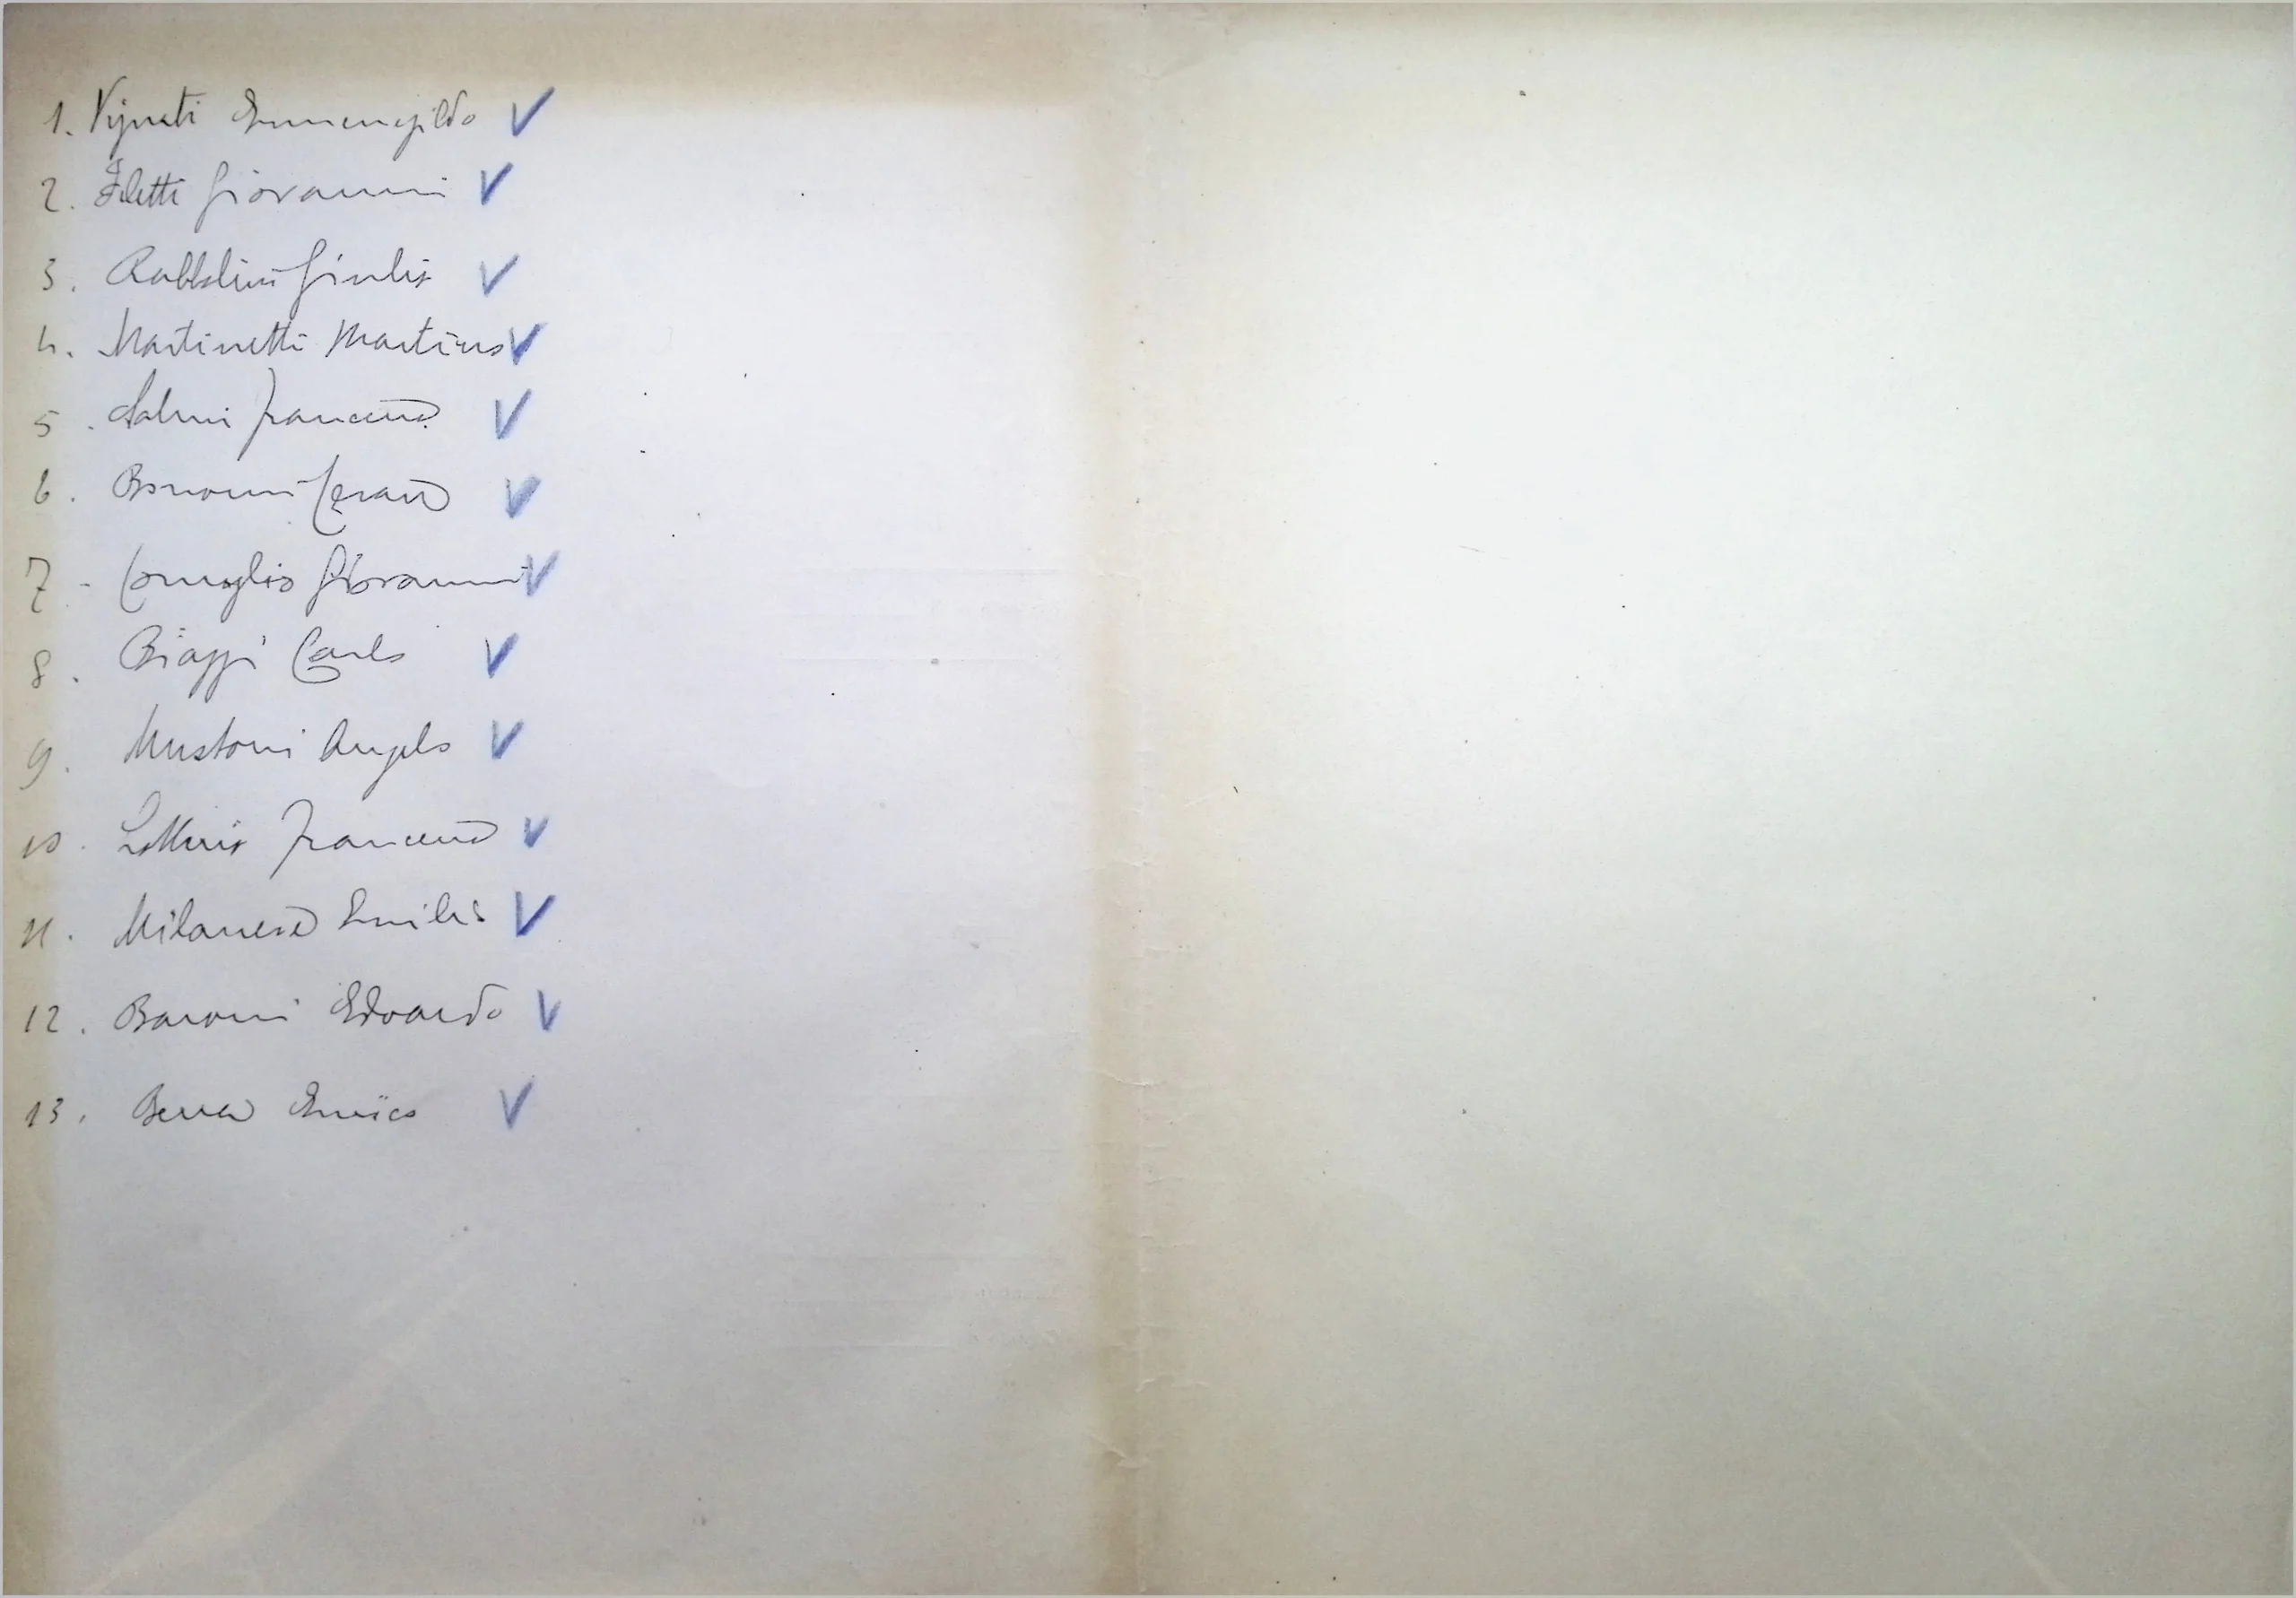 1. Vignati Ermenegildo ✓
2. Filetti Giovanni ✓
3. Rabbolini Giulio ✓
4. Martinetti Martino ✓
5. Salmi Francesco ✓
6. Bonomi Cesare ✓
7 - Comoglio Giovanni ✓
8. Biaggi Carlo ✓
9. Mustoni Angelo ✓
10. Francesco ✓
11. Milanese Emilio ✓
12. Baroni Edoardo ✓
13. Berra Enrico ✓